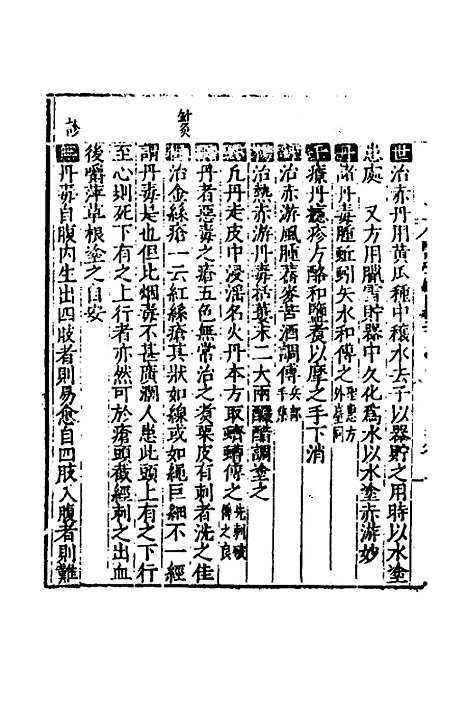 世治赤丹用黄瓜種中穰水去子以器貯之用時以水塗
患處　又方用臘雪貯器中久化爲水以水塗赤游妙
丹諸丹毒腫蚯蚓矢水和傅之聖惠方
千癮丹癮疹方酪和鹽煮以摩之手下消
治赤游風腫蕎麥苦酒調傅兵部手集
治熱赤游丹毒枯葉末二大兩釅醋調塗之
凡丹走皮中浸淫名火丹本方取蠐螬傅之先刺破傅之良
丹者惡毒之瘡五色無常治之煮栗皮有刺者洗之佳
針灸
治金絲瘡一云紅絲瘡其狀如線或如繩巨細不一經
謂丹毒是也但比烟毒不甚廣濶人患此頭上有之下行
至心則死下有之上行者亦然可於瘡頭截經刺之出血
後嚼萍草根塗之自安
診
無丹毒自腹内生出四肢者則易愈自四肢入腹者則難